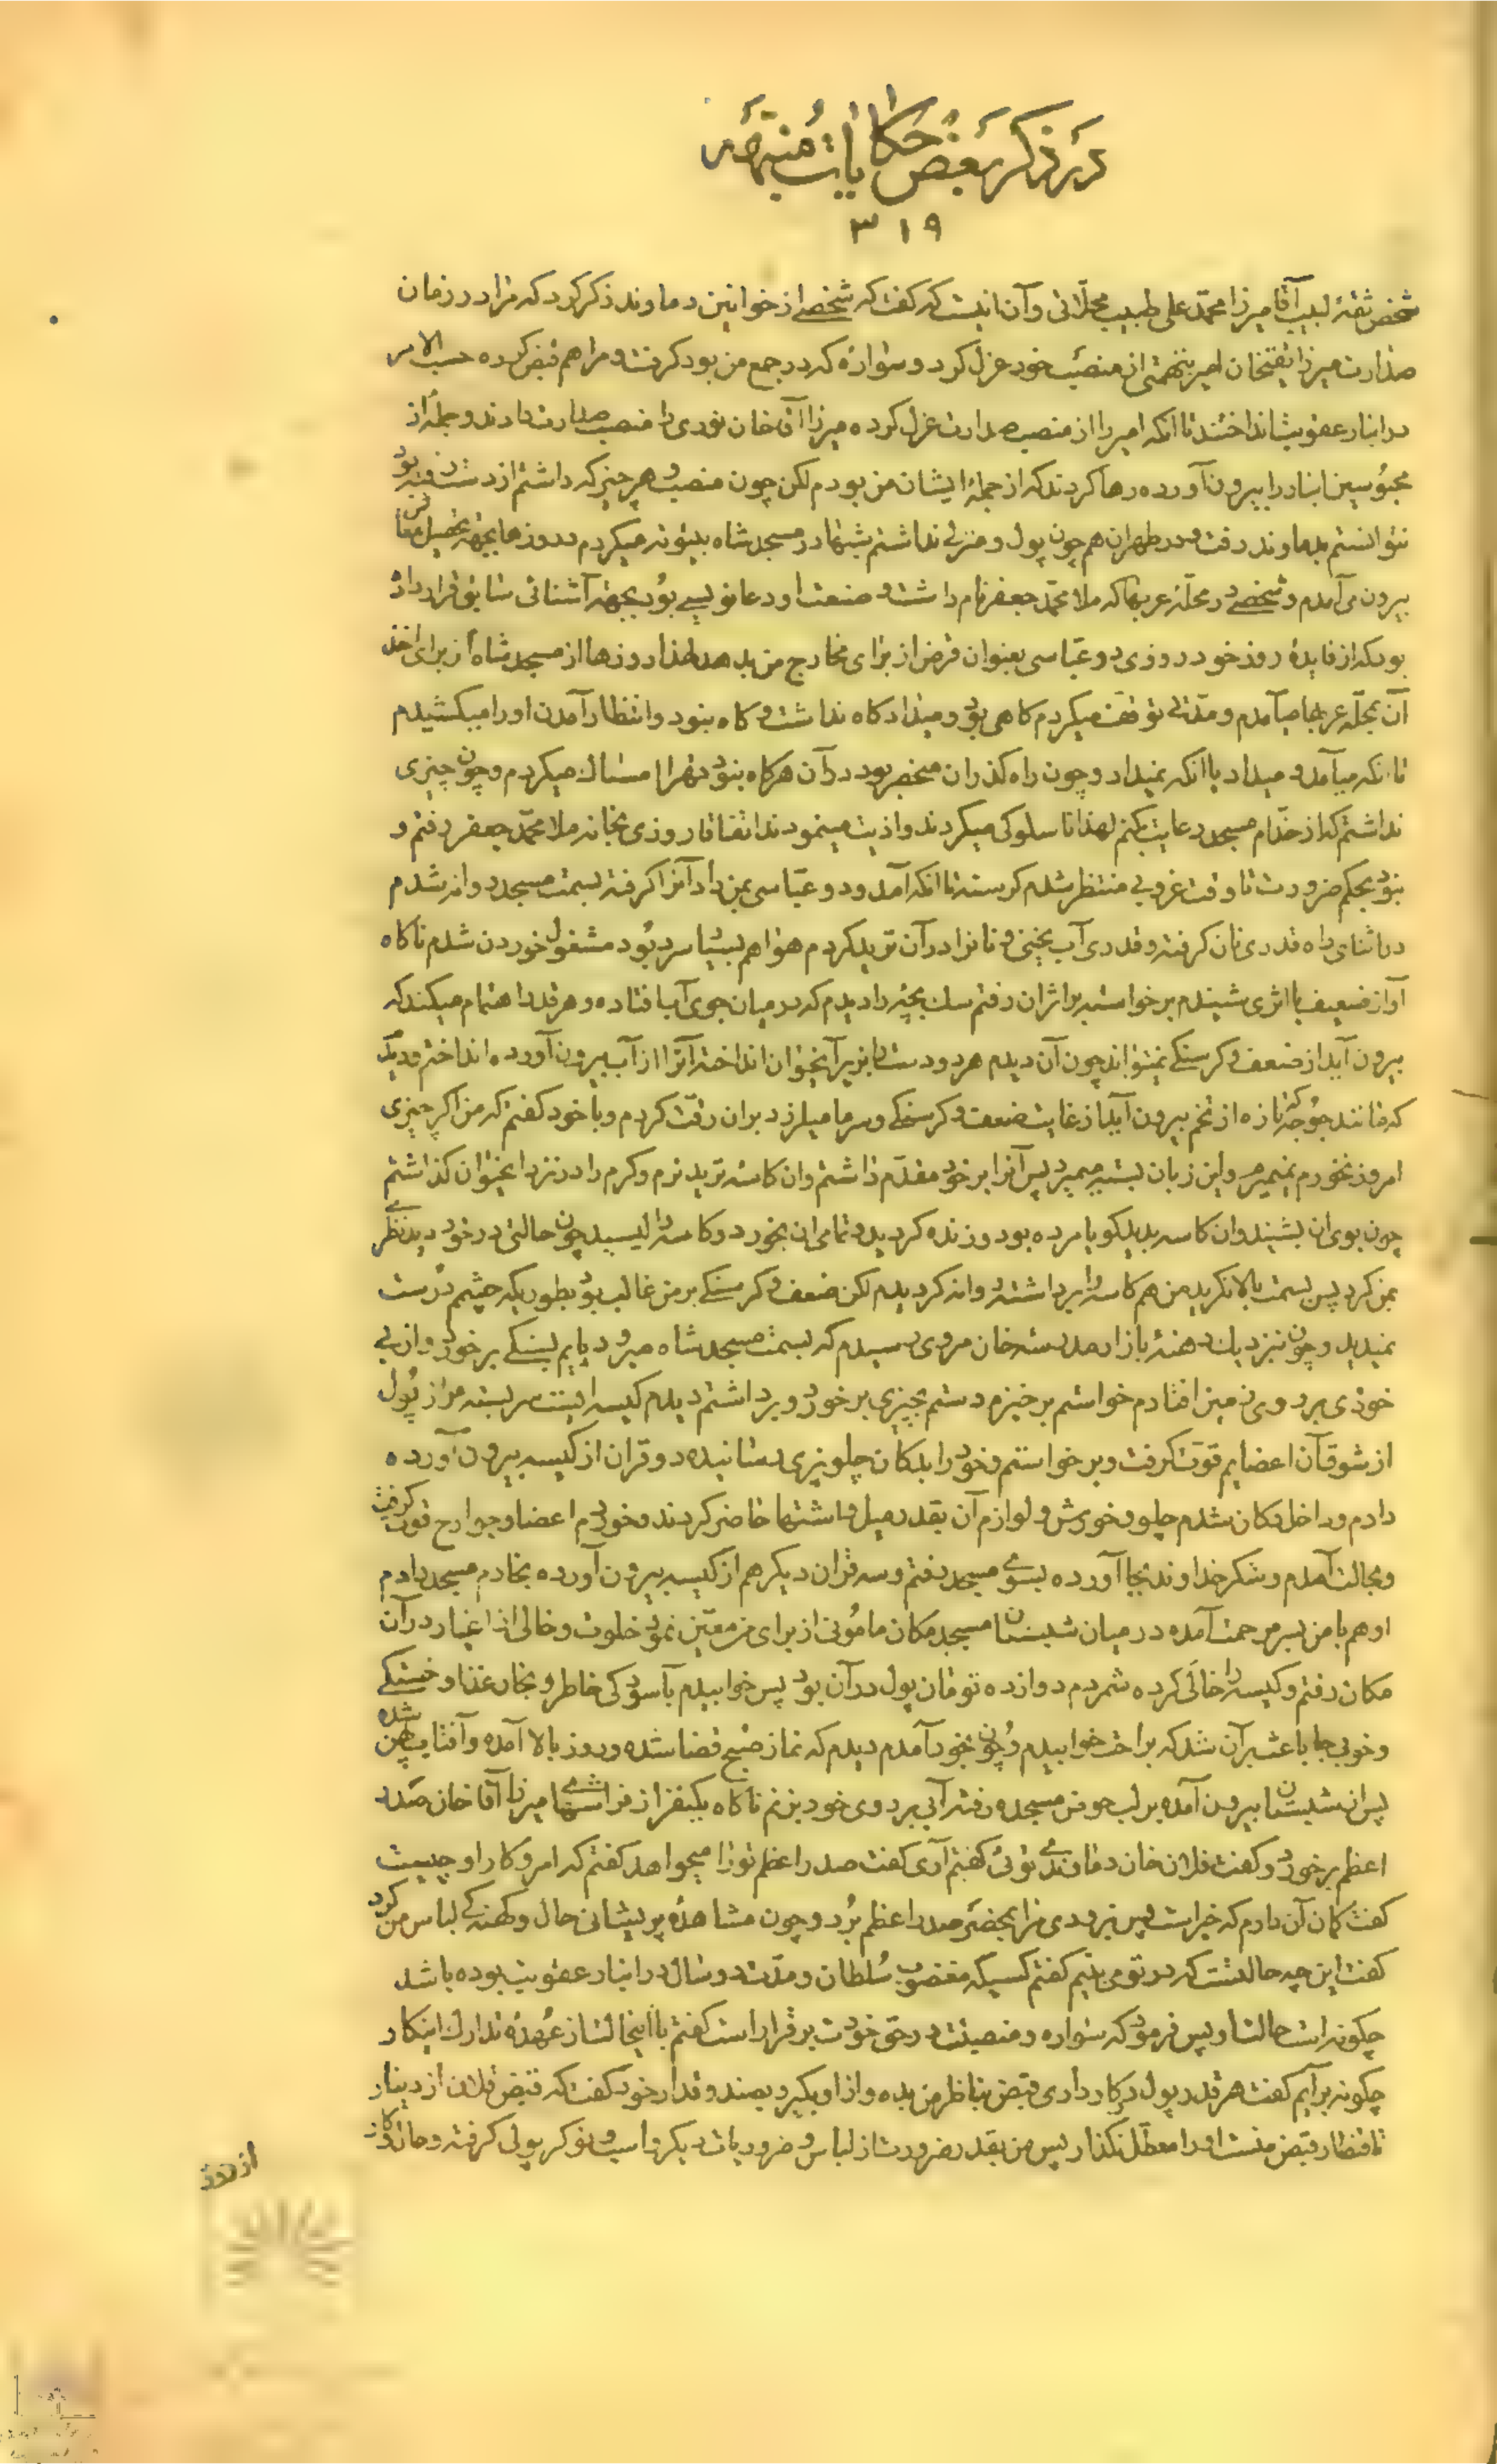 در ذکر بعض حکایات منبهه
۳۱۹
شخص ثقهٔ لبیب آقا میرزا محمّد علی طبیب محلّاتی و آن اینست که گفت که شخصی از خوانین دماوند ذکر کرد که مرا در زمان
صدارت میرزا تقیخان امیر بتهمتی از منصب خود عزل کرد و سواره که در جمع من بود گرفت و مرا هم قبض کرده حسب الامر
در انبار عقوبت انداختند تا انکه امیر را از منصب صدارت عزل کرده میرزا آقا خان نوری را منصب صدارت دادند و جمله از
محبوسین انبار را بیرون آورده رها کردند که از جملهٔ ایشان من بودم لکن چون منصب و هر چیز که داشتم از دست رفته بود
نتوانستم بدماوند رفت و در طهران هم چون پول و منزلی نداشتم شبها در مسجد شاه بیتوته میکردم و روزها بجهة تحصیل معاش
بیرون می آمدم و شخصی در محلّهٔ عربها که ملا محمّد جعفر نام داشت و صنعت او دعا نویسی بود بجهة آشنائی سابق قرار داده
بود که از فایدهٔ روز خود روزی دو عبّاسی بعنوان قرض از برای مخارج من بدهد لهذا روزها از مسجد شاه از برای اخذ
آن بمحلّهٔ عربها میآمدم و مدّتی توقف میکردم گاهی بود و میداد گاه نداشت و گاه نبود و انتظار آمدن او را میکشیدم
تا انکه میآمد و میداد یا انکه نمیداد و چون راه گذران منحصر بود در آن هرگاه نبود قهرا امساک میکردم و چون چیزی
نداشتم که از خدّام مسجد رعایت کنم لهذا ناسلوکی میکردند و اذیت مینمودند اتفاقا روزی بخانه ملا محمّد جعفر رفتم و
نبود بحکم ضرورت تا وقت غروبی منتظر شدم گرسنه تا انکه آمد و دو عبّاسی بمن داد آنرا گرفته بسمت مسجد روانه شدم
در اثنای راه قدری نان گرفته و قدری آب یخنی و نانرا در آن ترید کردم هوا هم بسیار سرد بود مشغول خوردن شدم ناگاه
آواز ضعیف با اثری شنیدم برخواسته بر اثر ان رفتم سگ بچهٔ را دیدم که در میان جوی آب افتاده و هر قدر اهتمام میکند که
بیرون آید از ضعف و گرسنگی نمیتواند چون آن دیدم هر دو دست را بزیر آنحیوان انداخته آنرا از آب بیرون آورده انداختم و دیدم
که مانند جوجهٔ که تازه از تخم بیرون آید از غایت ضعف و گرسنگی و سرما میلرزد بر ان رقّت کردم و با خود گفتم که من اگر چیزی
امروز نخورم نمیمیرم و این زبان بسته میمیرد پس آنرا بر خود مقدّم داشتم و ان کاسه ترید نرم و گرم را در نزد انحیوان گذاشتم
چون بوی ان بشنید و ان کاسه بدید گویا مرده بود و زنده گردید و تمام ان بخورد و کاسه را لیسید چون حالتی در خود دید نظری
بمن کرد پس بسمت بالا نگرید من هم کاسه را برداشته روانه گردیدم لکن ضعف و گرسنگی بر من غالب بود بطوریکه چشم درست
نمیدید و چون نزدیک دهنهٔ بازار مدرسه خان مروی رسیدم که بسمت مسجد شاه میرود پایم بسنگی برخورد و از بی
خودی بر روی زمین افتادم خواستم برخیزم دستم بچیزی برخورد و برداشتم دیدم کیسه ایست سر بسته مراز پول
از شوق آن اعضایم قوّت گرفت و برخواستم و خود را بدکان چلو پزی رسانیده دو قران از کیسه بیرون آورده
دادم و داخل دکان شدم چلو و خورش و لوازم آن بقدر میل و اشتها حاضر کردند و خوردم اعضا و جوارح قوت گرفت
و بحالت آمدم و شکر خداوند بجا آورده بسوی مسجد رفتم و سه قران دیگر هم از کیسه بیرون آورده بخادم مسجد دادم
او هم با من بسر مرحمت آمده در میان شبستان مسجد مکان مامونی از برای من معیّن نمود خلوت و خالی از اغیار در آن
مکان رفتم و کیسه را خالی کرده شمردم دوازده تومان پول در آن بود پس خوابیدم بآسودگی خاطر و بخار غذا و خستگی
و خوبی جا باعث بر آن شد که براحت خوابیدم و چون بخود آمدم دیدم که نماز صبح قضا شده و روز بالا آمده و آفتاب پهن شده
پس از شبستان بیرون آمده بر لب حوض مسجد رفته آبی بر روی خود بزنم ناگاه یکنفر از فراشهای میرزا آقا خان صدر
اعظم برخورد و گفت فلان خان دماوندی توئی گفتم آری گفت صدر اعظم تو را میخواهد گفتم که امر و کار او چیست
گفت گمان آن دارم که خیر است پس بزودی مرا بحضر صدر اعظم برد و چون مشاهدهٔ پریشانی حال و کهنه گی لباس من کرد
گفت این چه حالتست که در تو می بینم گفتم کسیکه مغضوب سلطان و مدّت دو سال در انبار عقوبت بوده باشد
چگونه است حالت او پس فرمود که سواره و منصبت در حق خودت برقرار است گفتم با اینحالت از عهدهٔ تدارک اینکار
چگونه برآیم گفت هر قدر پول در کار داری قبض بناظر من بده و از او بگیر و بصندوقدار خود گفت که قبض فلان از دینار
تا قنطار قبض منست او را معطّل نگذار پس من بقدر ضرورت از لباس و ضروریات دیگر و اسب و نوکر پولی گرفته و
از روز